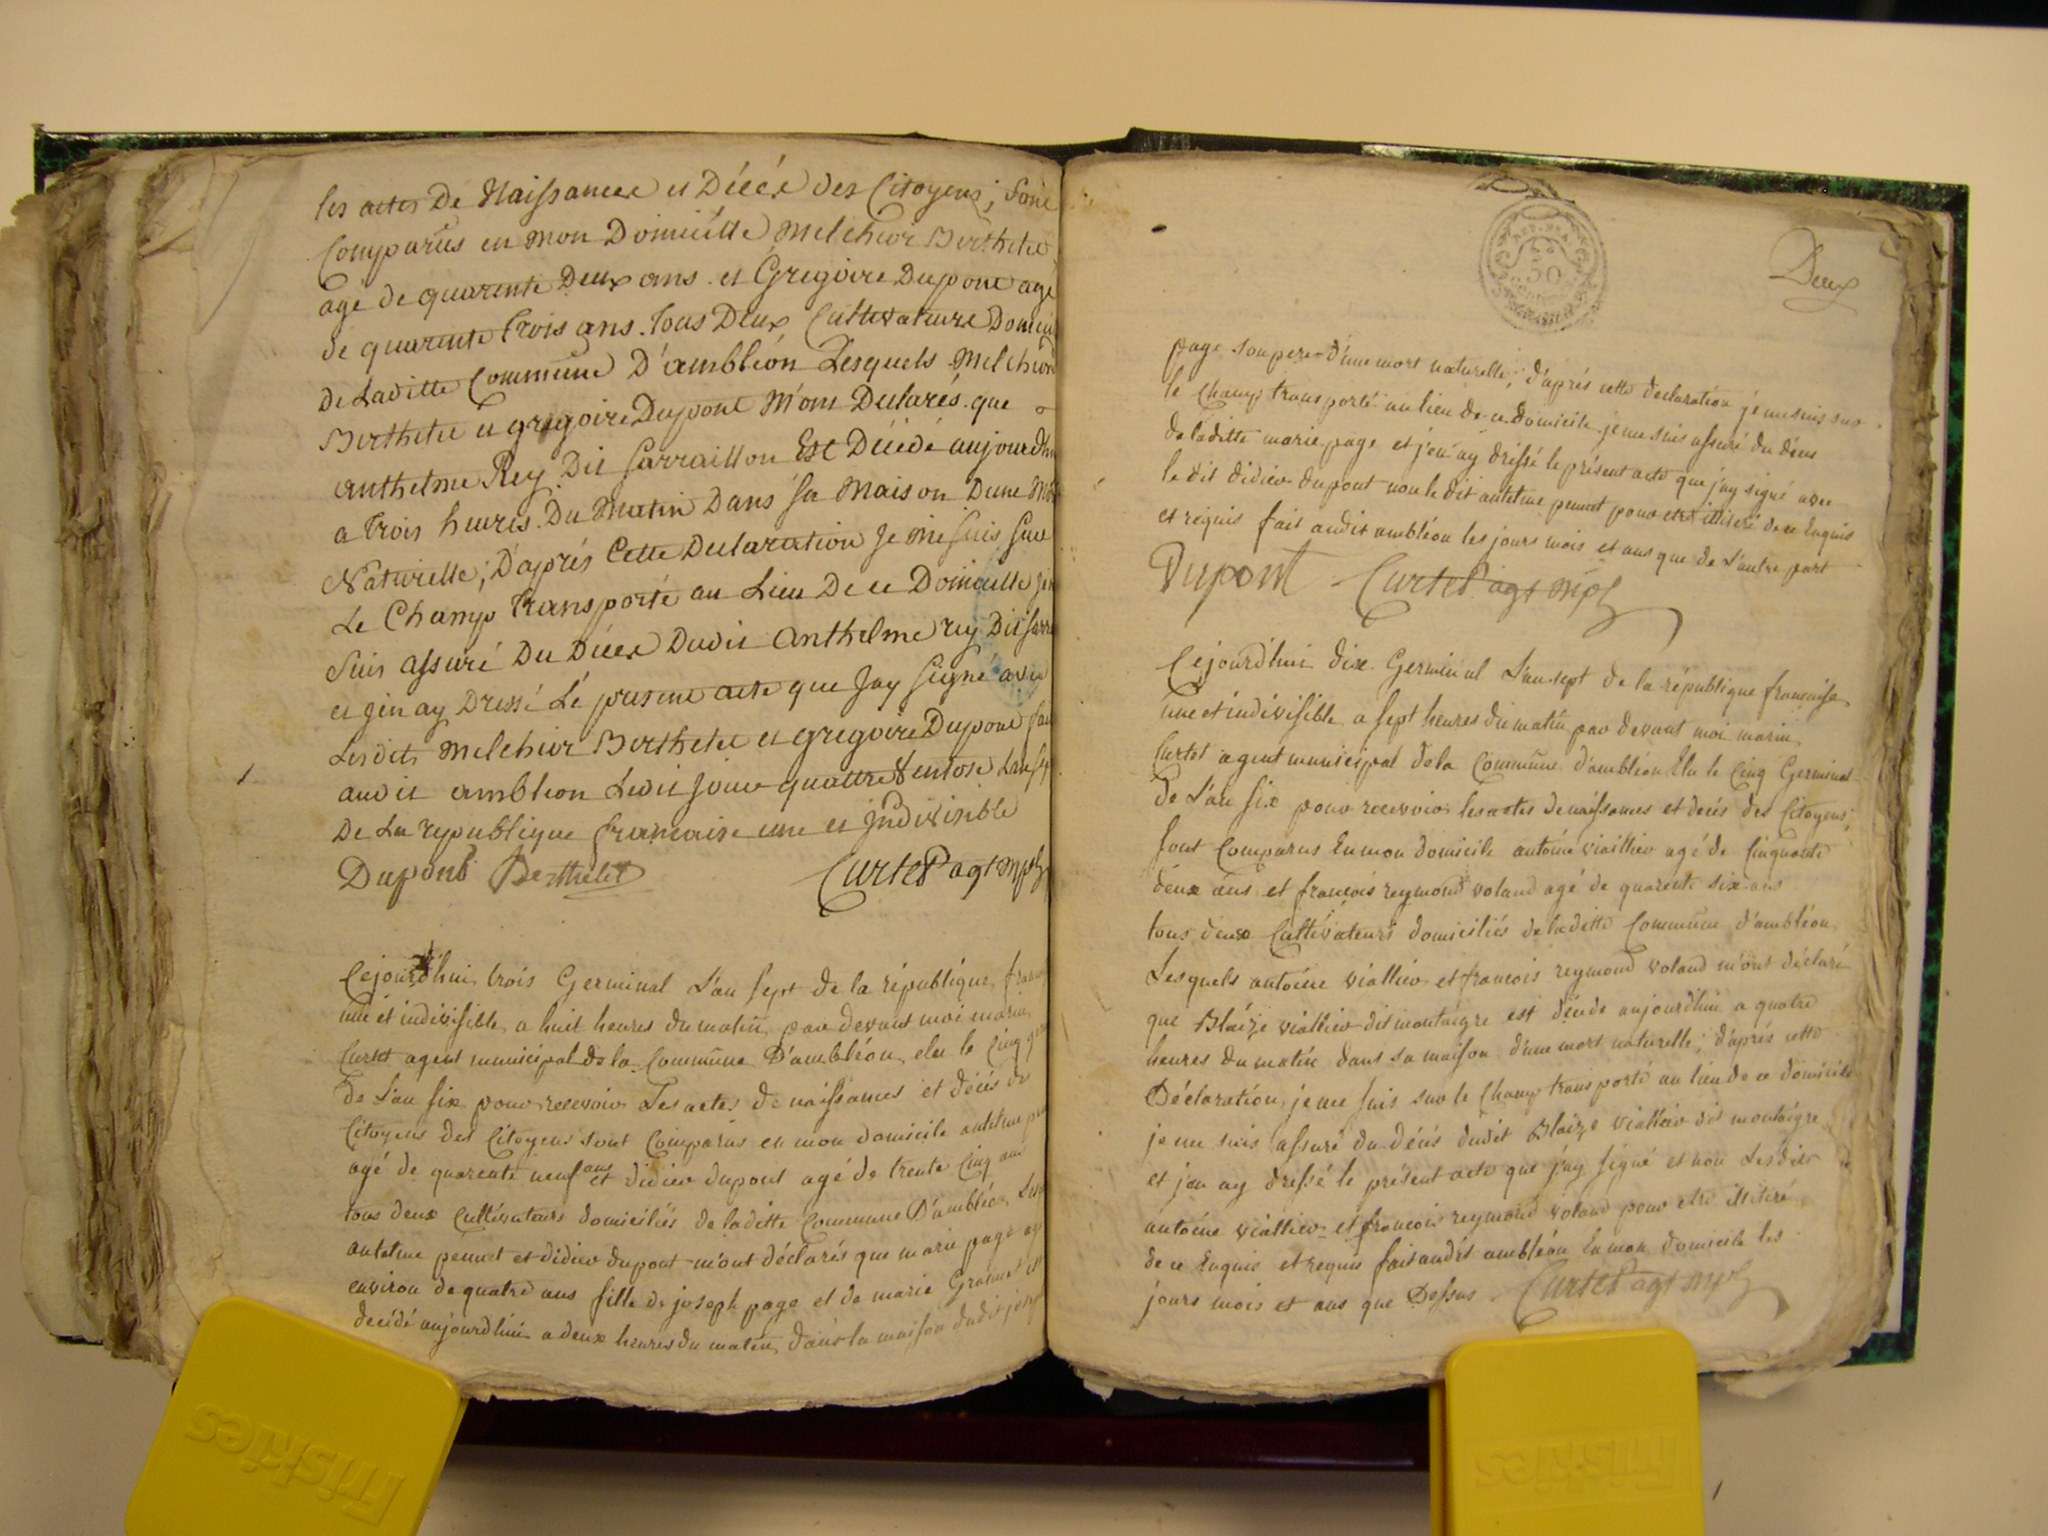 les actes De Naissance et Décéx des Citoyens, sont
Comparus en mon Domicille Melchior Berthelet
agé de quarente Deux ans et Gregoire Dupont agé
de quarente trois ans tous Deux Cultivateurs
De Laditte Commune D'ambléon Lesquels Melchior
Berthelet et gregoire Dupont M'ont Declarés que
anthelme Rey Dit Sarraillon Est Décédé aujourdhui
a trois heures Du Matin Dans sa Maison Dune
Naturelle; D'aprés Cette Declaration Je me suis sur
Le Champ transporté au Lieu De ce Domicille
suis assuré Du Décex Dudit anthelme rey Dit
et jen ay Dressé Le present acte que Jay signé avec
Lesdits Melchior Berthelet et gregoire Dupont
audit ambleon Ledit Jour quattre Ventose
De La republique francaise une et Indivisible
Dupont Berthelet Curtet agt mpl
Cejourd'hui trois Germinal L'an sept de la république
une et indivisible a huit heures du matin par devant moi marin
Curtet agent municipal de la Commune D'ambléon elu le Cinq
de L'an six pour recevoir Les actes de naissances et décés de
Citoyens des Citoyens sont Comparus en mon domicile antelme
agé de quarente neuf ans et didier dupont agé de trente Cinq ans
tous deux Cultivateurs domiciliés de laditte Commune D'ambléon
antelme pennet et didier dupont m'ont déclarés que marie page
environ de quatre ans fille de joseph page et de marie
decédé aujourdhui a deux heures du matin dans la maison dudit
Deux
50
page son pere d'une mort naturelle; d'aprés cette declaration je me suis sur
le Champ transporté au lieu de ce domicile je me suis assuré du décés
de laditte marie page et j'en ay dréssé le présent acte que j'ay signé avec
le dit didier dupont non le dit antelme pennet pour etre illitéré de ce Enquis
et requis fait audit ambléon les jours mois et ans que de L'autre part
Dupont Curtet agt mpl
Cejourd'hui dix Germinal L'an sept de la république francaise
une et indivisible a sept heures du matin par devant moi marin
Curtet agent municipal de la Commune d'ambléon Elu le Cinq Germinal
de L'an six pour recevoir les actes de naissances et decés des Citoyens,
sont Comparus En mon domicile antoine viallier agé de Cinquante
deux ans et francois reymond voland agé de quarente six ans
tous deux Cultivateurs domiciliés de laditte Commune d'ambléon
Lesquels antoine viallier et francois reymond voland m'ont déclaré
que Blaize viallier dit montaigre est décédé aujourd'hui a quatre
heures du matin dans sa maison d'une mort naturelle; d'aprés cette
Déclaration, je me suis sur le Champ transporté au lieu de ce domicile
je me suis assuré du décés dudit Blaize viallier dit montaigre
et j'en ay dréssé le présent acte que j'ay signé et non Lesdits
antoine viallier et francois reymond voland pour etre illitéré
de ce Enquis et requis fait audit ambléon En mon domicile les
jours mois et ans que Dessus Curtet agt mpl
Friskies
Friskies